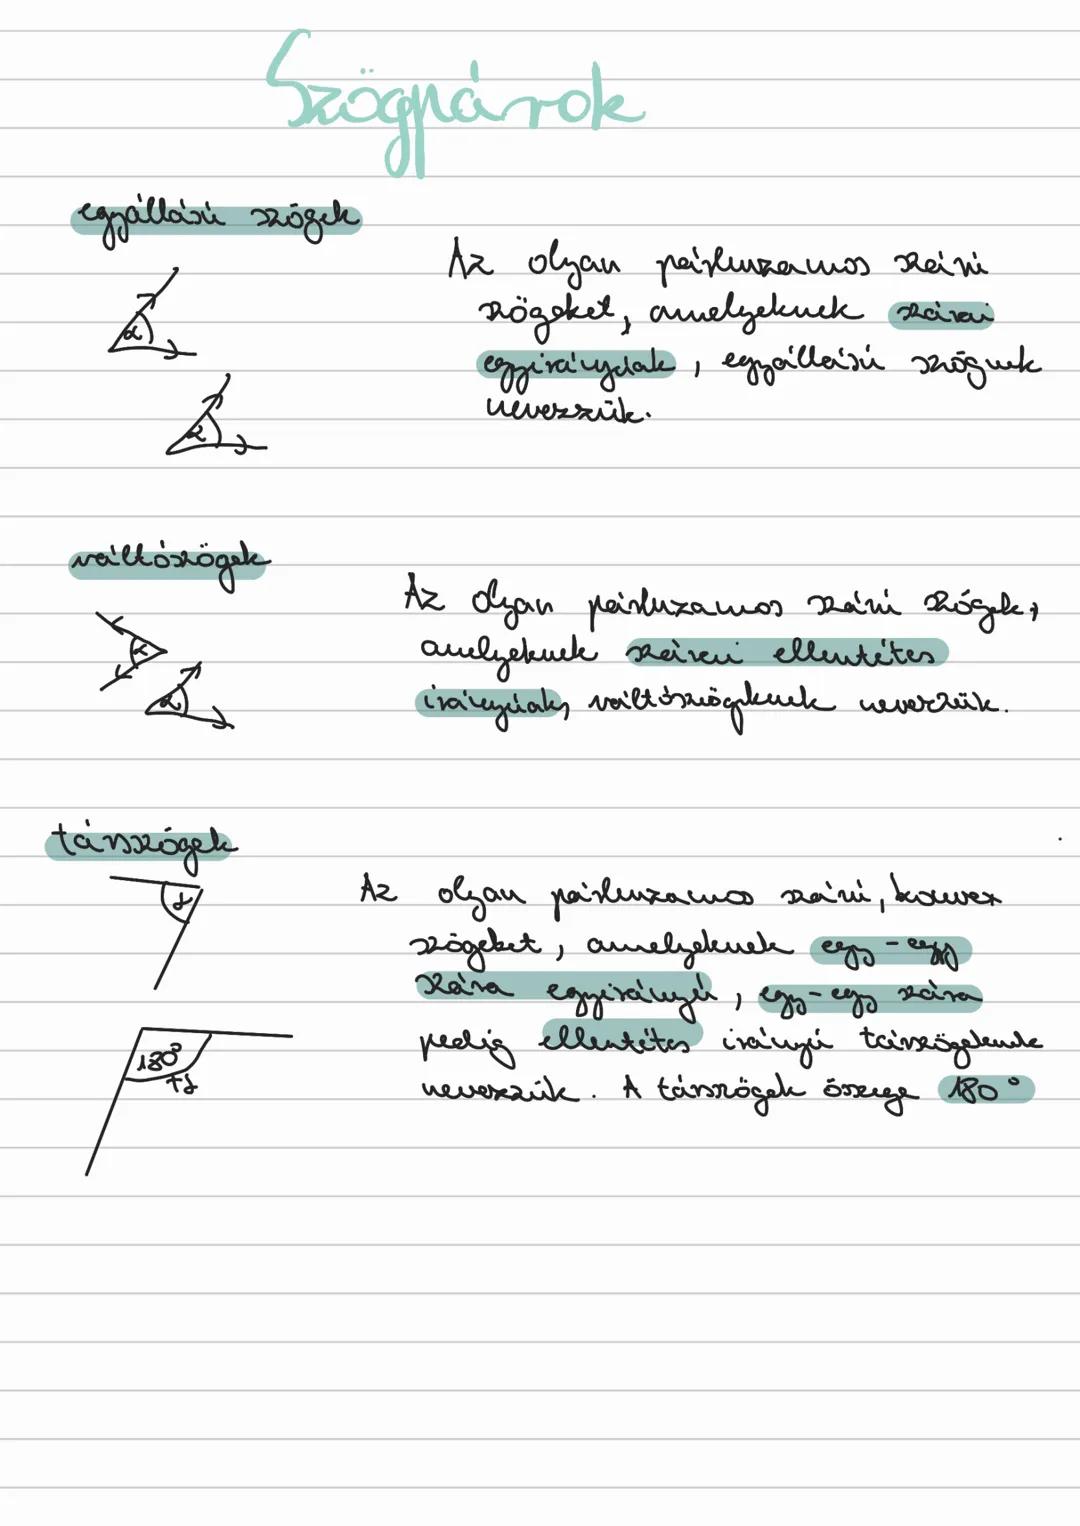 Szögpárok
egyállású szögek
α
α
Az olyan párhuzamos szárú
szögeket, amelyeknek szárai
egyirányúak, egyállású szögnek
nevezzük.
váltószögek
α
α
Az olyan párhuzamos szárú szögek,
amelyeknek szárai ellentétes
irányúak, váltószögeknek nevezzük.
társszögek
Az olyan párhuzamos szárú, konvex
szögeket, amelyeknek egy-egy
szára egyirányú, egy-egy szára
pedig ellentétes irányú társszögeknek
nevezzük. A társszögek összege 180°
180°